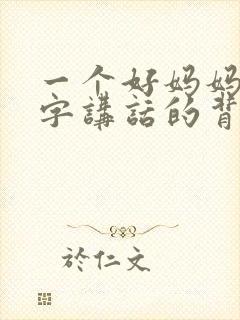 一个好妈妈
字講話的背
於仁文